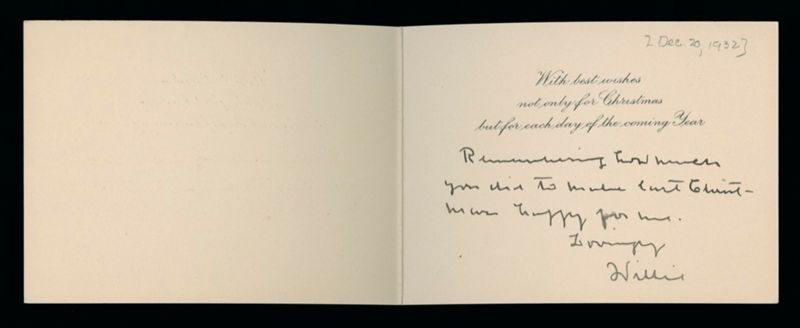 [Dec. 20, 1932]
With best wishes
not only for Christmas
but for each day of the coming Year
Remembering how much
you did to make last Christ-
mas happy for me.
Lovingly
Willie